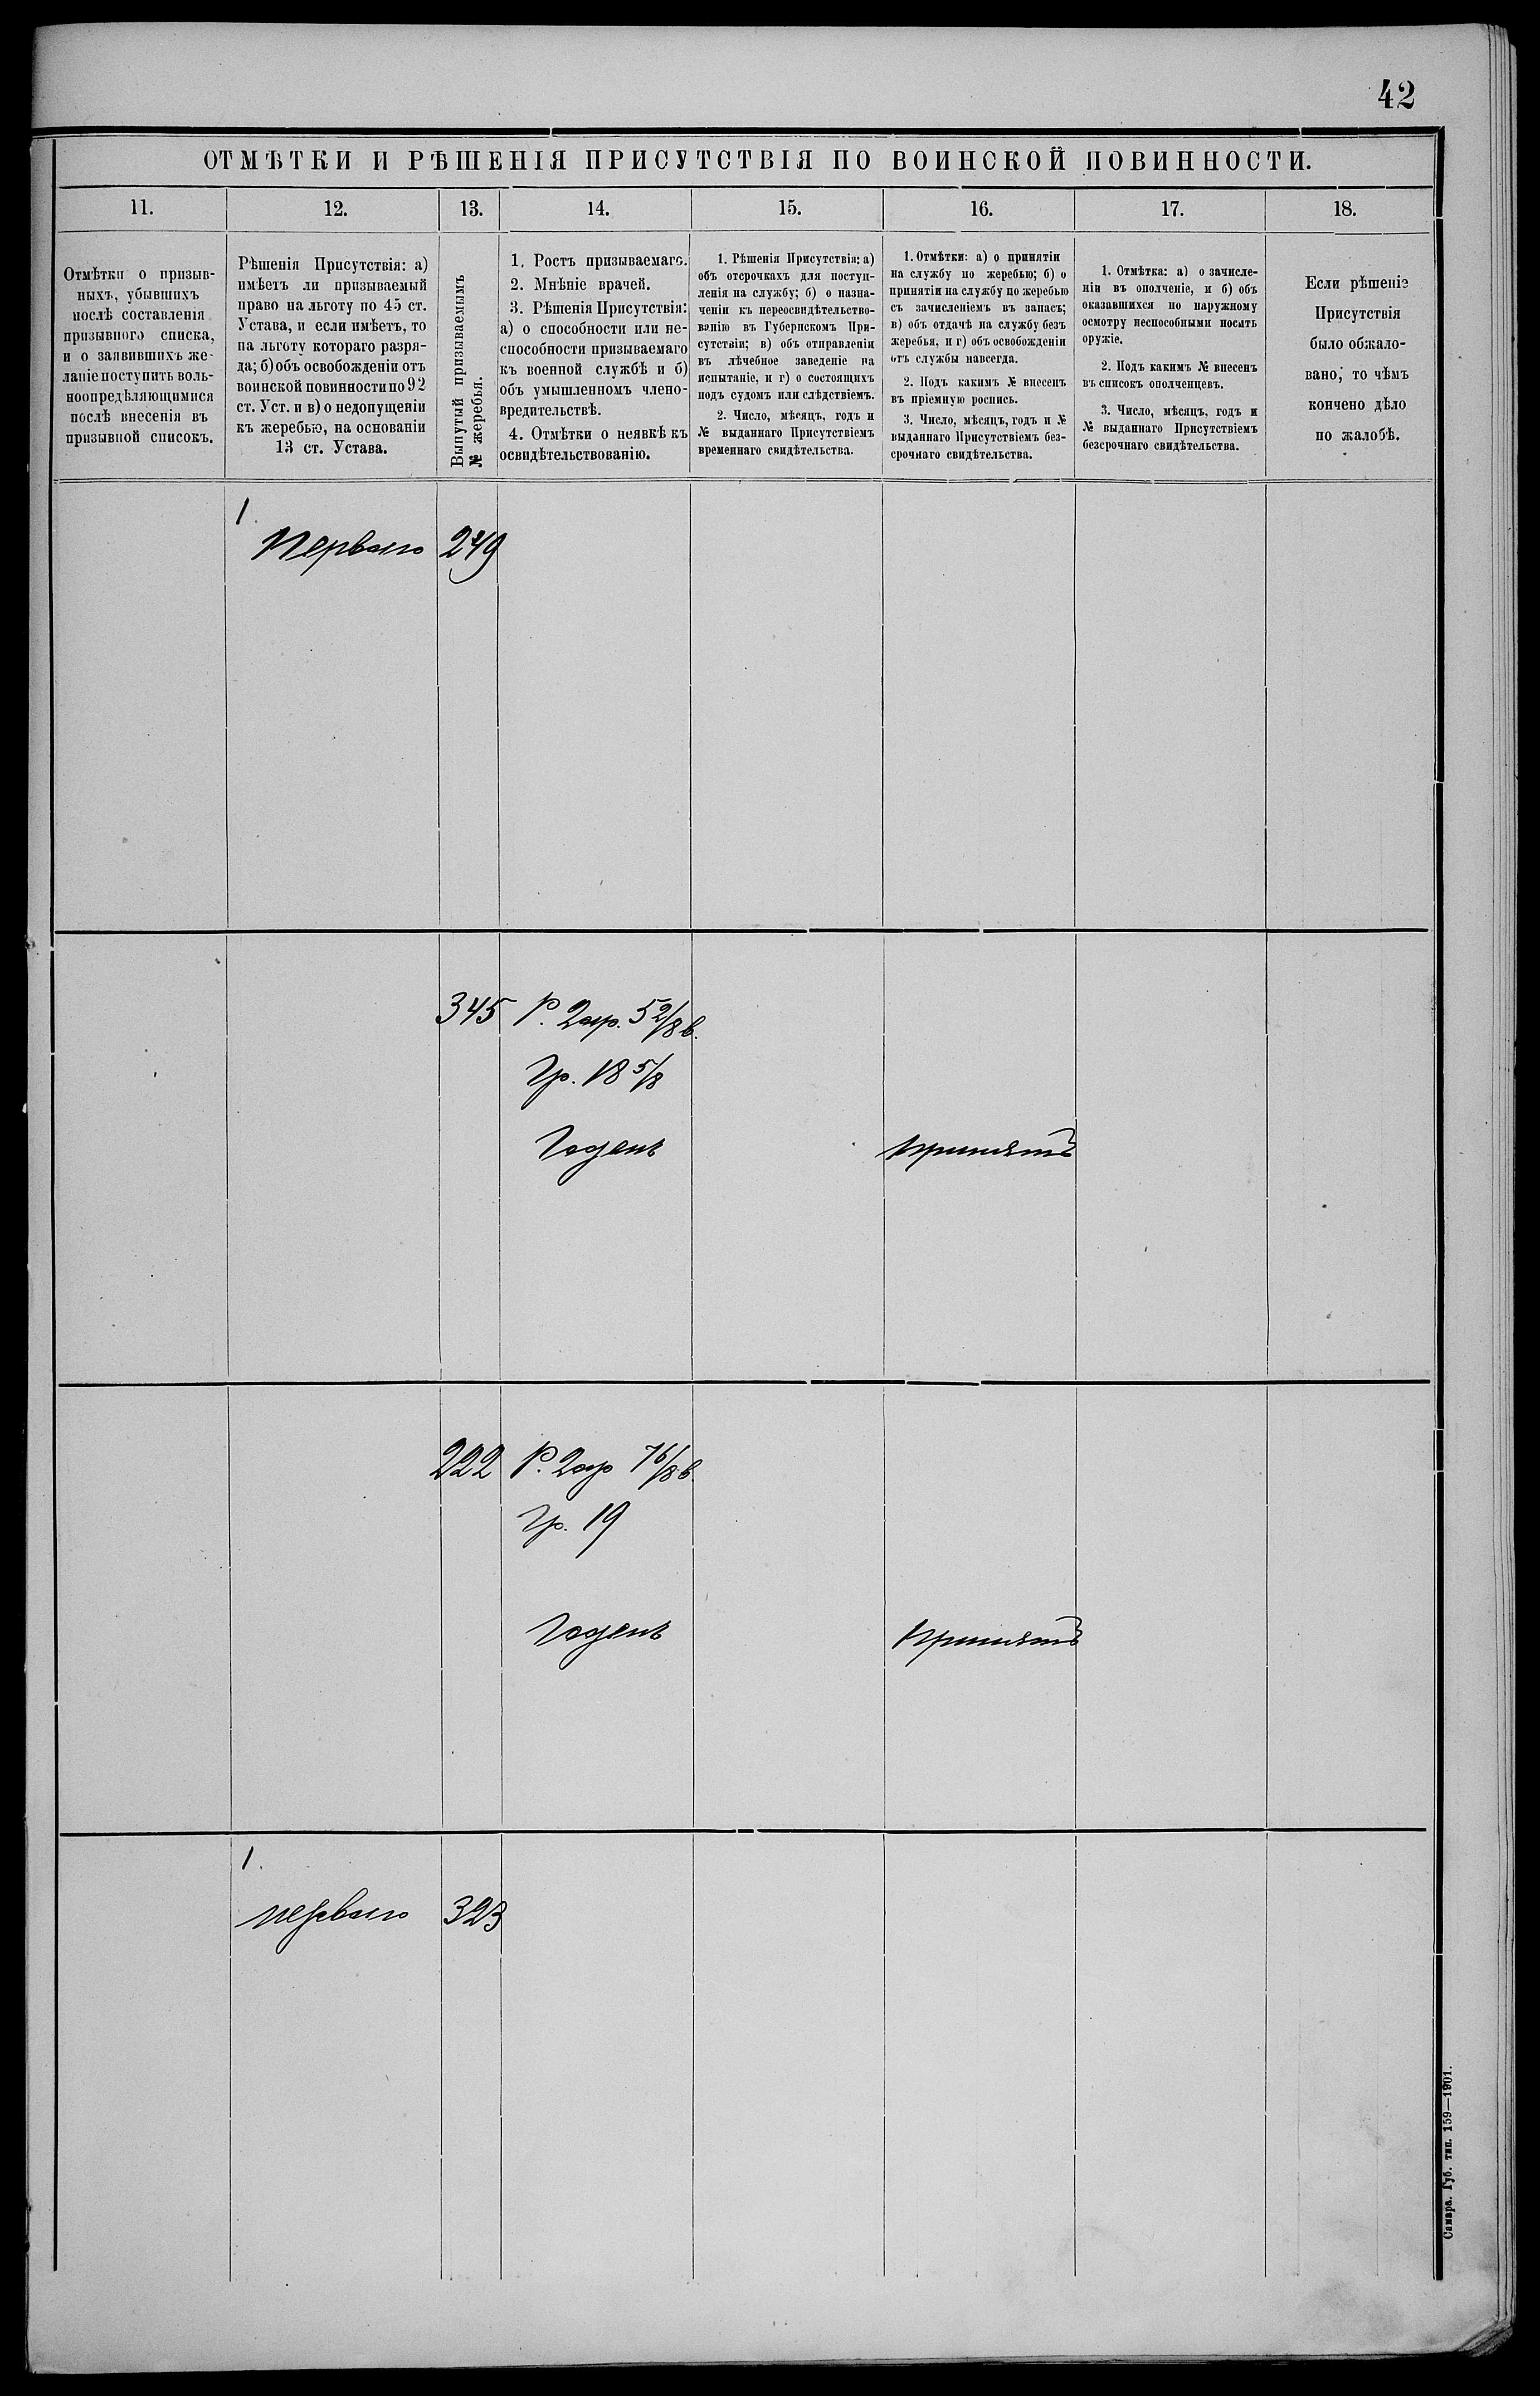 42
ОТМѢТКИ И РѢШЕНІЯ ПРИСУТСТВІЯ ПО ВОИНСКОЙ ПОВИННОСТИ.
11.
12.
13.
14.
15.
16.
17.
18.
Отмѣтки о призыв-
ныхъ, убывшихъ
послѣ составленія
призывного списка,
и о заявившихъ же-
ланіе поступить воль-
ноопредѣляющимися
послѣ внесенія въ
призывной списокъ.
Рѣшенія Присутствія: а)
имѣетъ ли призываемый
право на льготу по 45 ст.
Устава, и если имѣетъ, то
на льготу котораго разря-
да; б) объ освобожденіи отъ
воинской повинности по 92
ст. Уст. и в) о недопущеніи
къ жеребью, на основаніи
13 ст. Устава.
Вынутый призываемымъ
№ жеребья.
1. Ростъ призываемаго.
2. Мнѣніе врачей.
3. Рѣшенія Присутствія:
а) о способности или не-
способности призываемаго
къ военной службѣ и б)
объ умышленномъ члено-
вредительствѣ.
4. Отмѣтки о неявкѣ къ
освидѣтельствованію.
1. Рѣшенія Присутствія: а)
объ отсрочкахъ для поступ-
ленія на службу; б) о назна-
ченіи къ переосвидѣтельство-
ванію въ Губернскомъ При-
сутствіи; в) объ отправленіи
въ лѣчебное заведеніе на
испытаніе, и г) о состоящихъ
подъ судомъ или слѣдствіемъ.
2. Число, мѣсяцъ, годъ и
№ выданнаго Присутствіемъ
временнаго свидѣтельства.
1. Отмѣтки: а) о принятіи
на службу по жеребью; б) о
принятіи на службу по жеребью
съ зачисленіемъ въ запасъ;
в) объ отдачѣ на службу безъ
жеребья, и г) объ освобожденіи
отъ службы навсегда.
2. Подъ какимъ № внесенъ
въ пріемную роспись.
3. Число, мѣсяцъ, годъ и №
выданнаго Присутствіемъ без-
срочнаго свидѣтельства.
1. Отмѣтка: а) о зачисле-
ніи въ ополченіе, и б) объ
оказавшихся по наружному
осмотру неспособными носить
оружіе.
2. Подъ какимъ № внесенъ
въ списокъ ополченцевъ.
3. Число, мѣсяцъ, годъ и
№ выданнаго Присутствіемъ
безсрочнаго свидѣтельства.
Если рѣшеніе
Присутствія
было обжало-
вано, то чѣмъ
кончено дѣло
по жалобѣ.
1.
Перваго 249
345 Р. 2 ар. 5 2/8 в.
Гр. 18 5/8
Годенъ Принятъ
222 Р. 2 ар 7 6/8 в.
Гр. 19
Годенъ Принятъ
1.
перваго 323
Самара. Губ. тип. 159—1901.